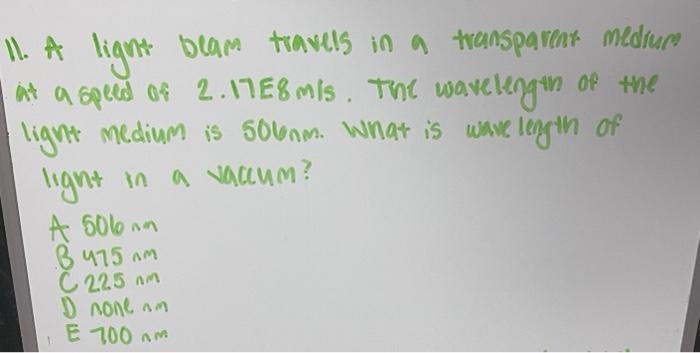 11. A light beam travels in a transparent medium
at a speed of 2.17E8 m/s. The wavelength of the
light medium is 506nm. What is wave length of
light in a vaccum?
A 506 nm
B 475 nm
C 225 nm
D none nm
E 700 nm